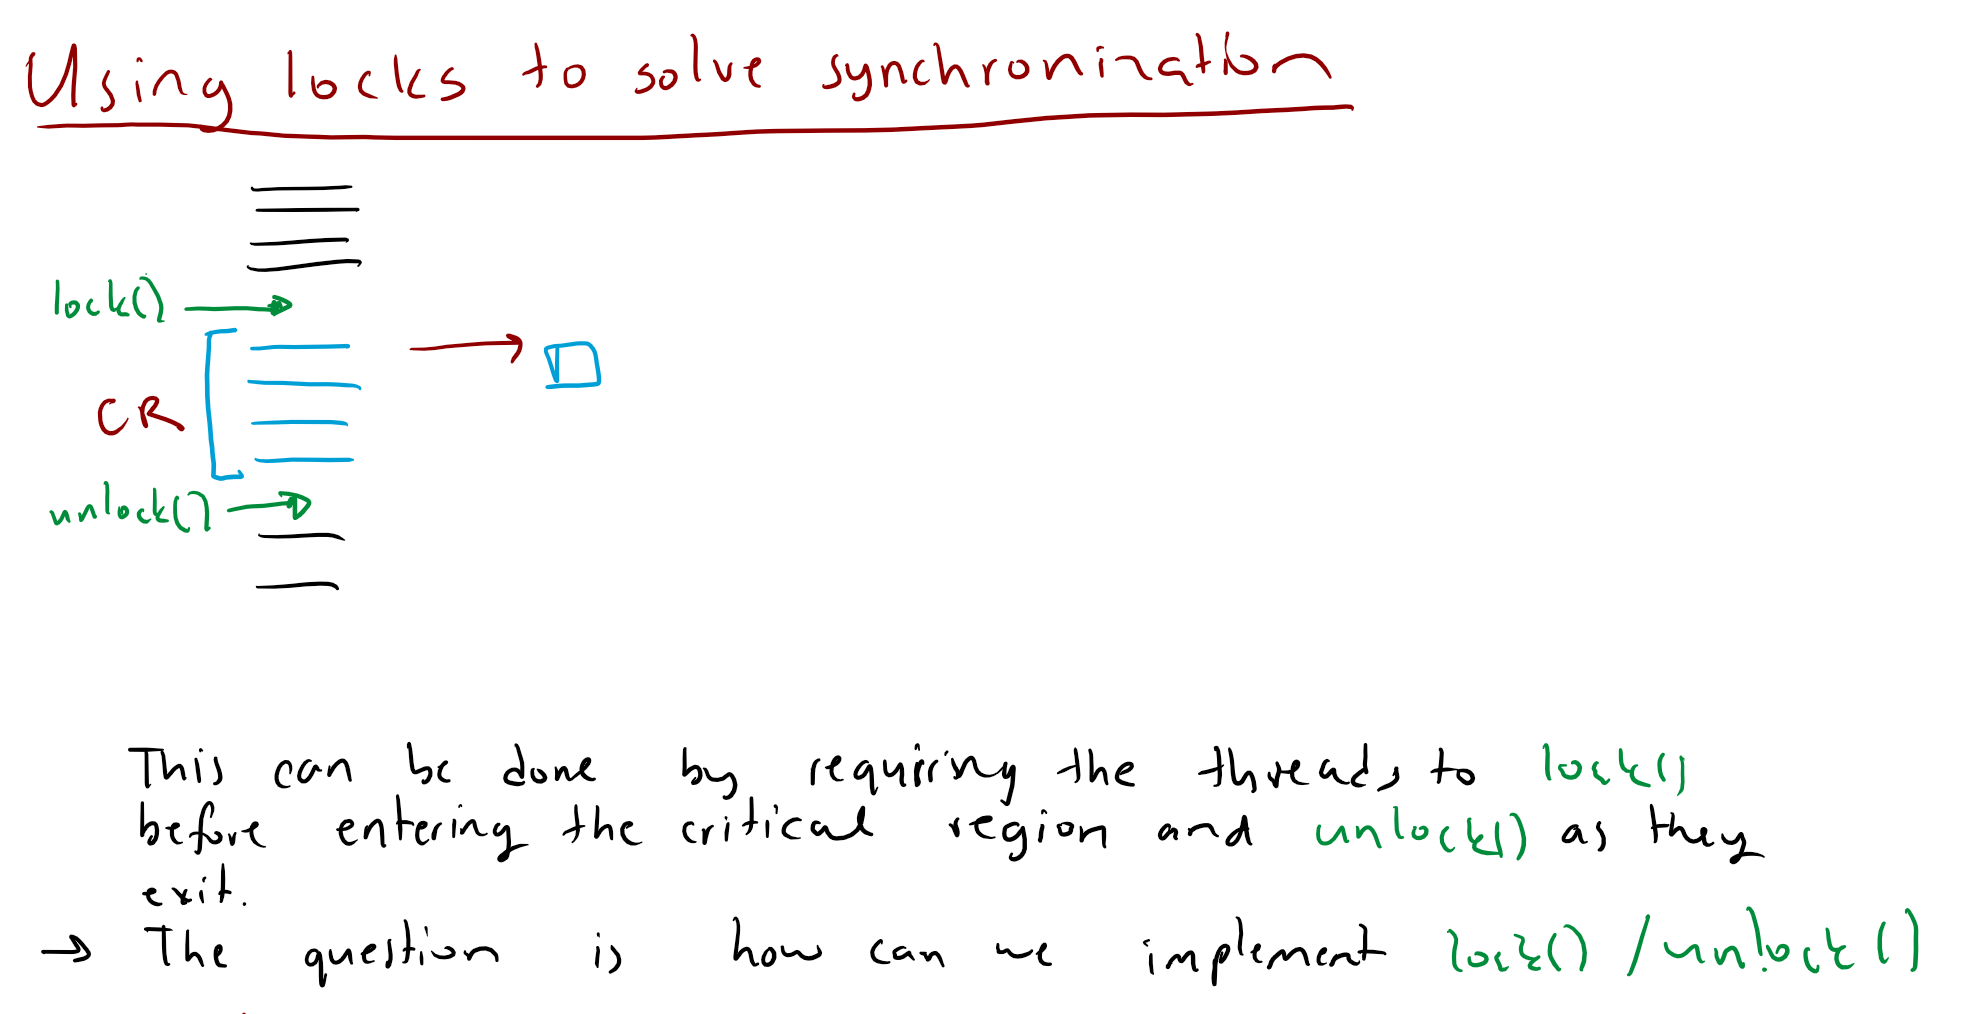 Using locks to solve synchronization
lock()
CR
unlock()
This can be done by requiring the threads to lock()
before entering the critical region and unlock() as they
exit.
→ The question is how can we implement lock() / unlock()